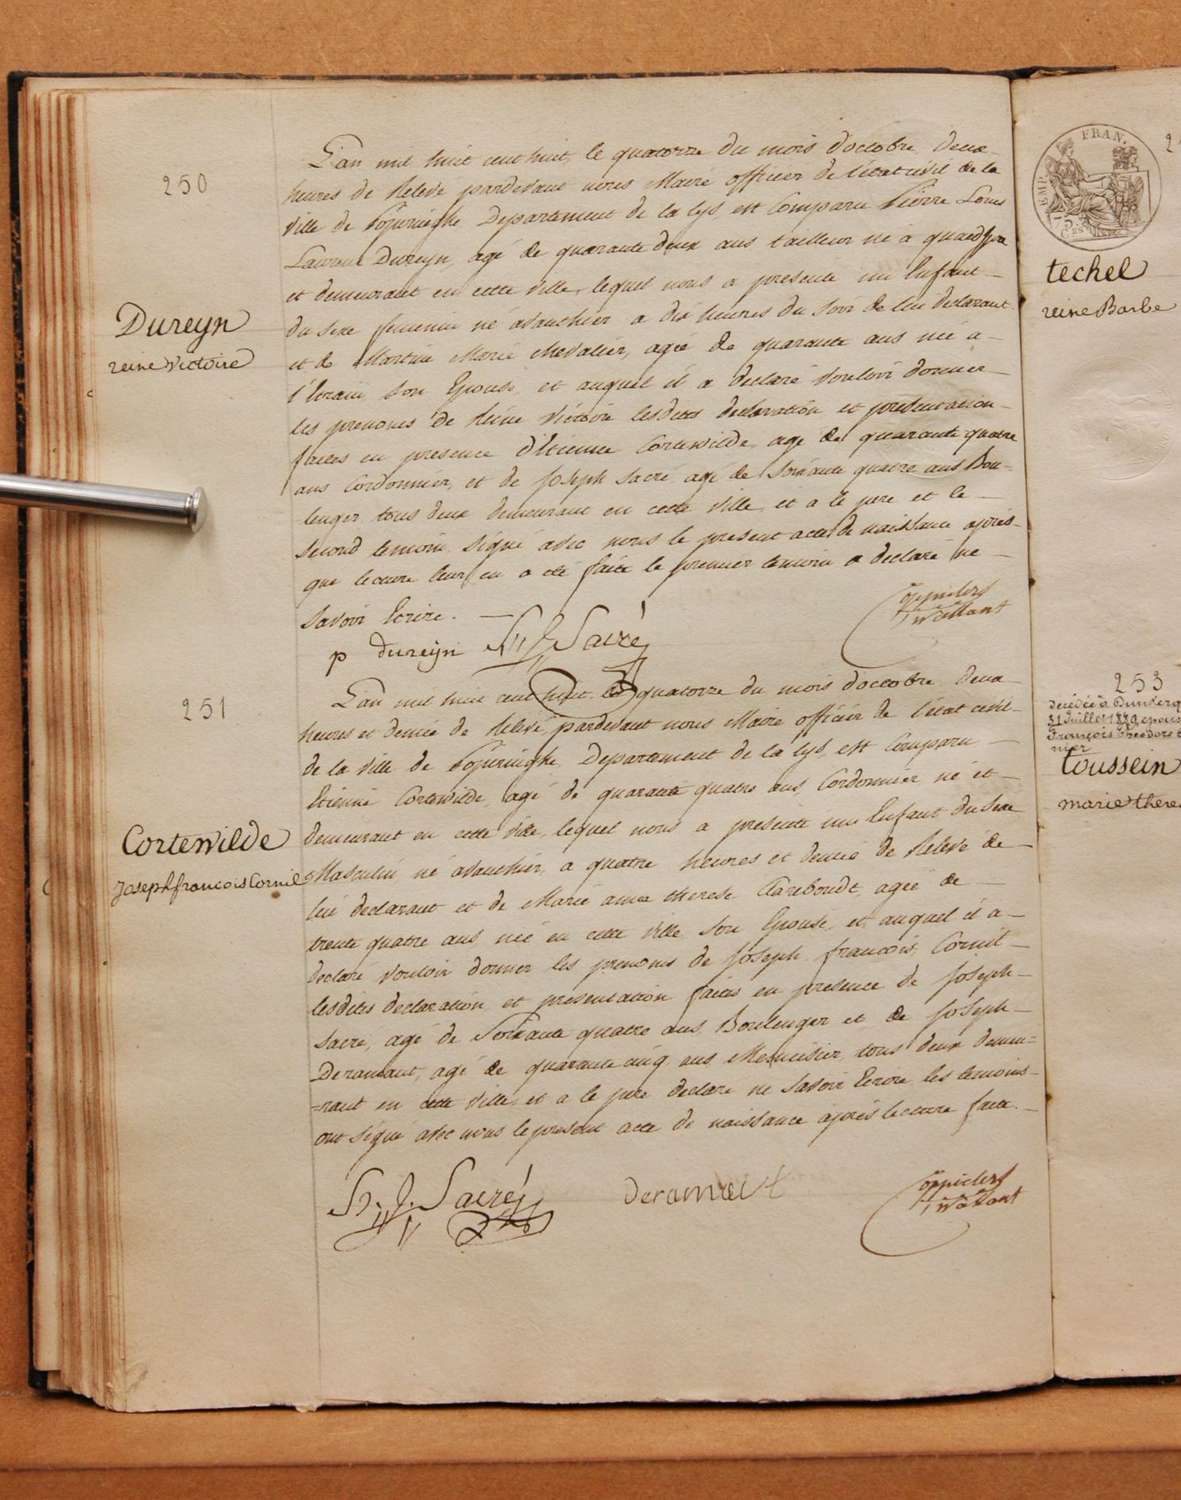 250
Dureyn
reine Victoire
L'an mil huit cent huit, le quatorze du mois d'octobre deux
heures de Relevé pardevant nous Maire officier de l'état civil de la
ville de Popuringhe Departement de la Lys, est Comparu Pierre Louis
Dureyn, agé de quarante deux ans tailleur né a
et demeurant en cette ville, lequel nous a presenté un Enfant
du Sexe feminin né avanthier a dix heures du Soir de lui declarant
et de Martine Marie Chevalier, agée de quarante ans née a
Son Epouse et auquel il a declaré vouloir donner
les prenoms de Reine Victoire lesdites declaration et presentation
faites en presence d'Etienne Cortewilde agé de quarante quatre
ans Cordonnier, et de Joseph Sacré agé de Soixante quatre ans Bou-
lenger tous deux demeurant en cette ville, et a le pere et le
Second temoin signé avec nous le present acte de naissance après
que lecture leur en a été faite le premier temoin a declaré ne
Savoir Ecrire.
p dureyn J Sacré
251
Cortewilde
Joseph francois Cornil
L'an mil huit cent huit le quatorze du mois d'octobre deux
heures et demie de Relevé, pardevant nous Maire officier de l'état civil
de la ville de Popuringhe Departement de la Lys, est Comparu
Etienne Cortewilde, agé de quarante quatre ans Cordonnier né et
demeurant en cette ville, lequel nous a presenté un Enfant du Sexe
Masculin né avanthier, a quatre heures et demie de Relevé de
lui declarant et de Marie anne therese Clareboudt, agée de
trente quatre ans née en cette ville Son Epouse, et auquel il a
declaré vouloir donner les prenoms de Joseph francois Cornil
lesdites declaration et presentation faites en presence de Joseph
Sacré, agé de Soixante quatre ans Boulenger et de Joseph
Deramaut, agé de quarante cinq ans Menuisier, tous deux demeu-
=rant en cette ville, et a le pere declaré ne Savoir Ecrire les temoins
ont signé avec nous le present acte de naissance après lecture faite.
J. Sacré
FRAN.
techel
reine Barbe
253
décédée à Dunkerq
31 Juillet 1879 epous
François Theodore
toussein
marie there